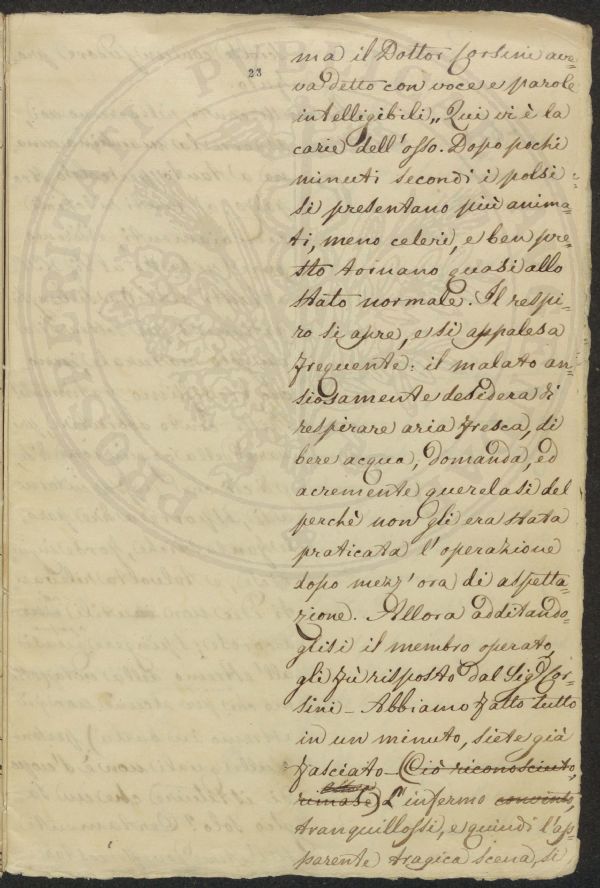 23
ma il Dottor Corsini ave-
va detto con voce e parole
intelligibili „ Qui vi è la
carie dell'osso. Dopo pochi
minuti secondi i polsi
si presentano più anima-
ti, meno celeri, e ben pre-
sto tornano quasi allo
stato normale. Il respi-
ro si apre, e si appalesa
frequente: il malato an-
siosamente desidera di
respirare aria fresca, di
bere acqua, domanda, ed
acremente querelasi del
perchè non gli era stata
praticata l'operazione
dopo mezz'ora di aspetta-
zione. Allora additando-
glisi il membro operato,
gli fù risposto dal Sig. Cor-
sini – Abbiamo fatto tutto
in un minuto, siete già
fasciato – Ciò riconosciuto,
rimase L'infermo convinto,
tranquillossi, e quindi l'ap-
parente tragica scena, si